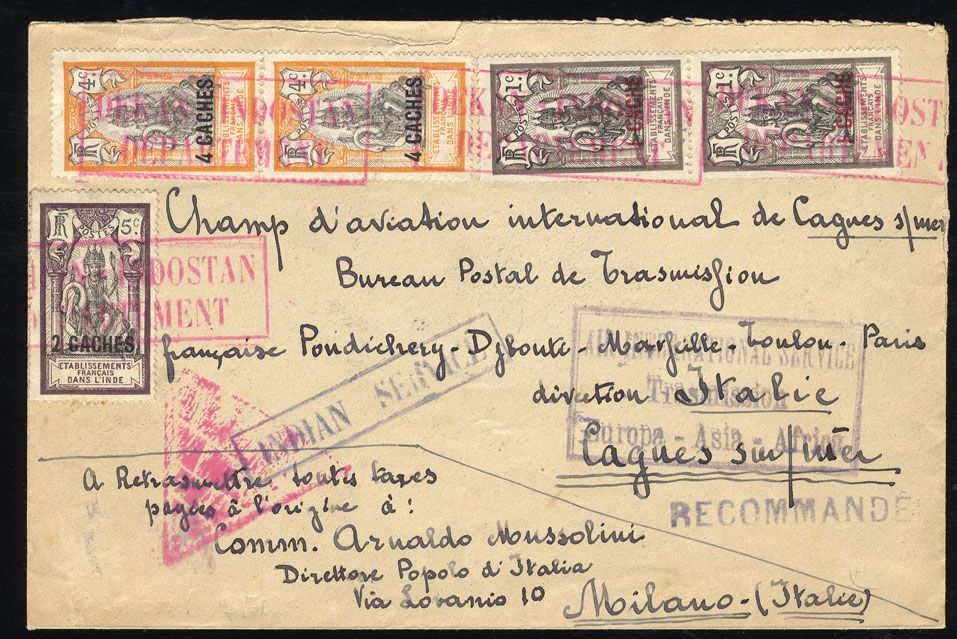 4c. 4 CACHES POSTES RF ETABLISSEMENTS FRANÇAIS DANS L'INDE
4c. 4 CACHES POSTES RF ETABLISSEMENTS FRANÇAIS DANS L'INDE
1c. CACHES POSTES RF ETABLISSEMENTS FRANÇAIS DANS L'INDE
1c. CACHES POSTES RF ETABLISSEMENTS FRANÇAIS DANS L'INDE
DEKAN INDOSTAN
DEPARTMENT
RF POSTES 5c
2 CACHES
ETABLISSEMENTS
FRANÇAIS
DANS L'INDE
INDOSTAN
MENT
Champ d'aviation international de Cagnes s/mer
Bureau Postal de Trasmission
française Pondichery - Djbouti - Marseille - Toulon - Paris
direction Italie
Cagnes sur/mer
INDIAN SERVICE
INTERNATIONAL SERVICE
Trasmission
Europa - Asia - Africa
RECOMMANDÉ
A Retrasmettre toutes taxes
payées à l'origine à:
Comm. Arnaldo Mussolini
Direttore Popolo d'Italia
Via Lovanio 10
Milano - (Italie)